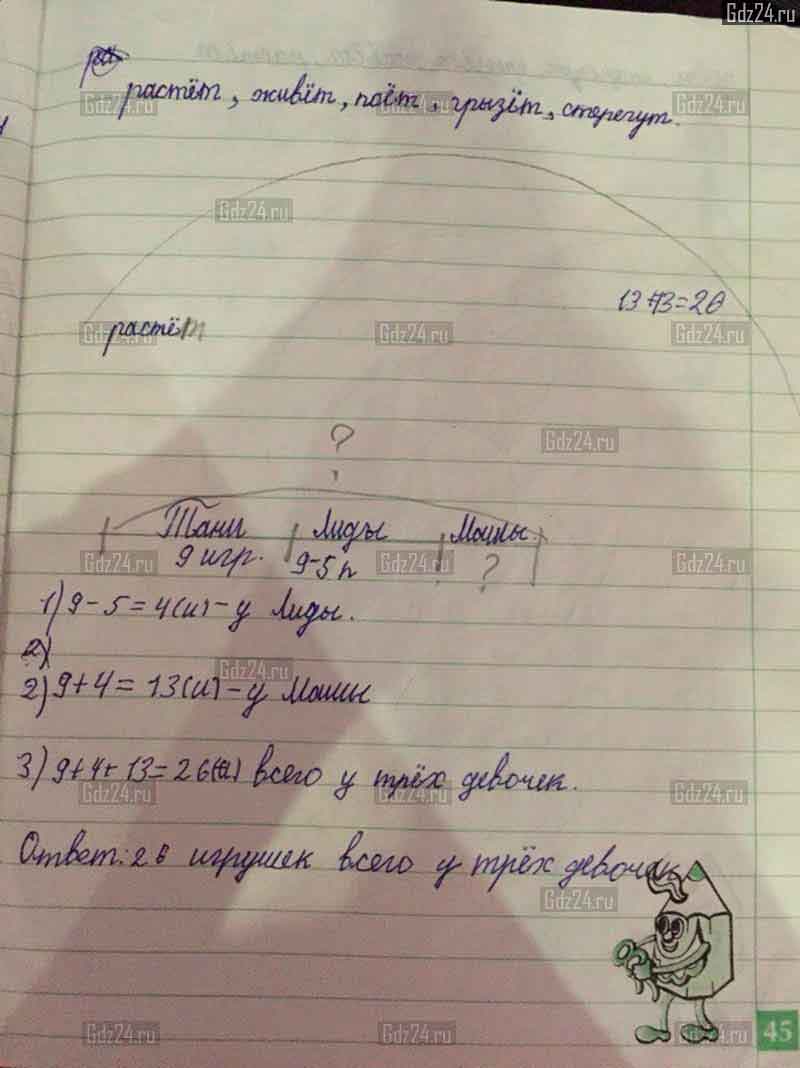 Gdz24.ru
растёт, живёт, поёт, грызёт, стерегут.
растёт
13+13=26
?
Тани Лиды Маши
9 игр. 9-5 ?
1) 9-5=4(и)-у Лиды.
2)
2) 9+4=13(и)-у Маши
3) 9+4+13=26(и) всего у трёх девочек.
Ответ: 26 игрушек всего у трёх девочек
45